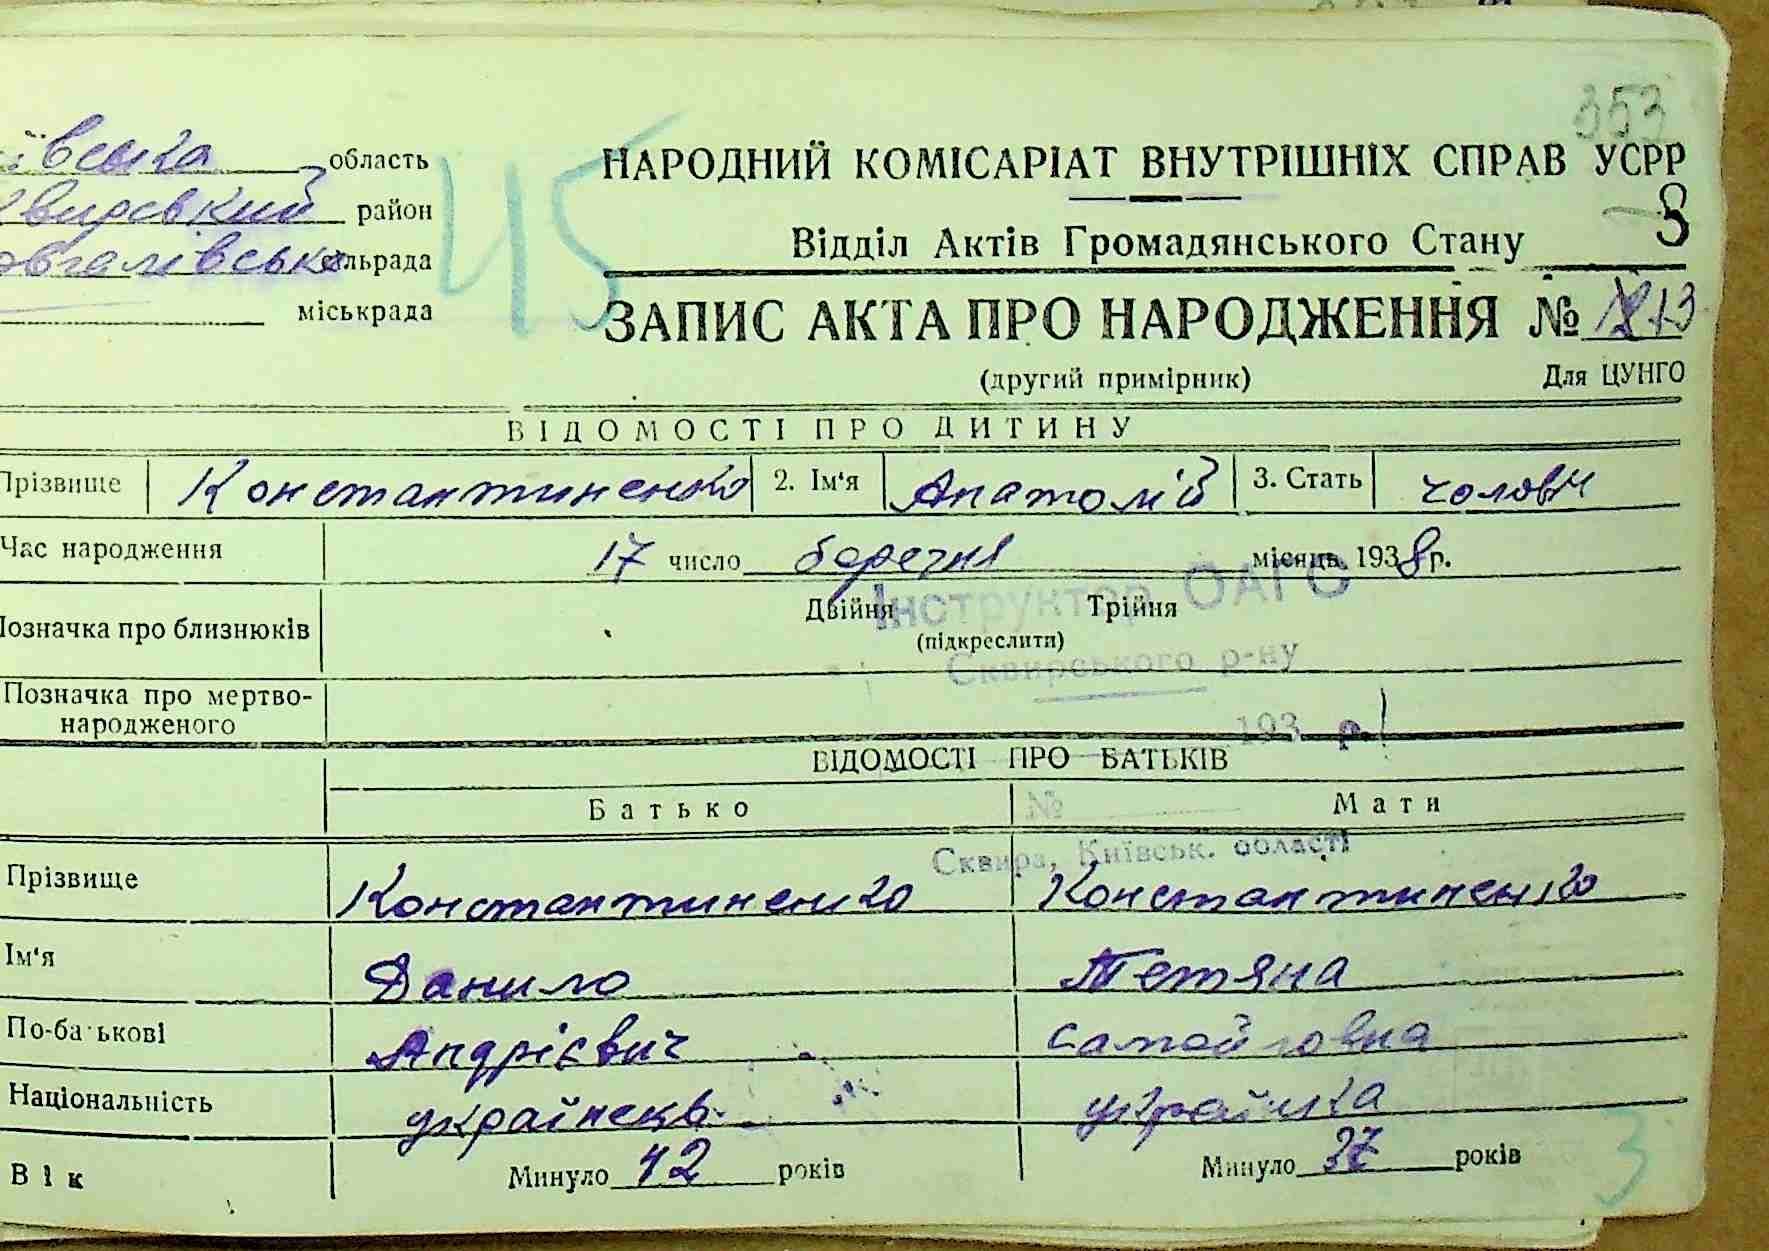 353
ївська область
45
НАРОДНИЙ КОМІСАРІАТ ВНУТРІШНІХ СПРАВ УСРР
квирський район
3
Відділ Актів Громадянського Стану
овгалівська сільрада
міськрада
ЗАПИС АКТА ПРО НАРОДЖЕННЯ № 13
(другий примірник)
Для ЦУНГО
ВІДОМОСТІ ПРО ДИТИНУ
Прізвище Константиненко 2. Ім'я Анатолій 3. Стать чолов
Час народження 17 число березня місяць 1938 р.
Інструктор ОАГС
Позначка про близнюків Двійня Трійня
(підкреслити)
Сквирського р-ну
Позначка про мертво-
народженого
193 р.
ВІДОМОСТІ ПРО БАТЬКІВ
Батько Мати
№
Сквира, Київськ. області
Прізвище Константиненко Константиненко
Ім'я Данило Тетяна
По-батькові Андрієвич Самойловна
Національність українець українка
Вік Минуло 42 років Минуло 37 років
3